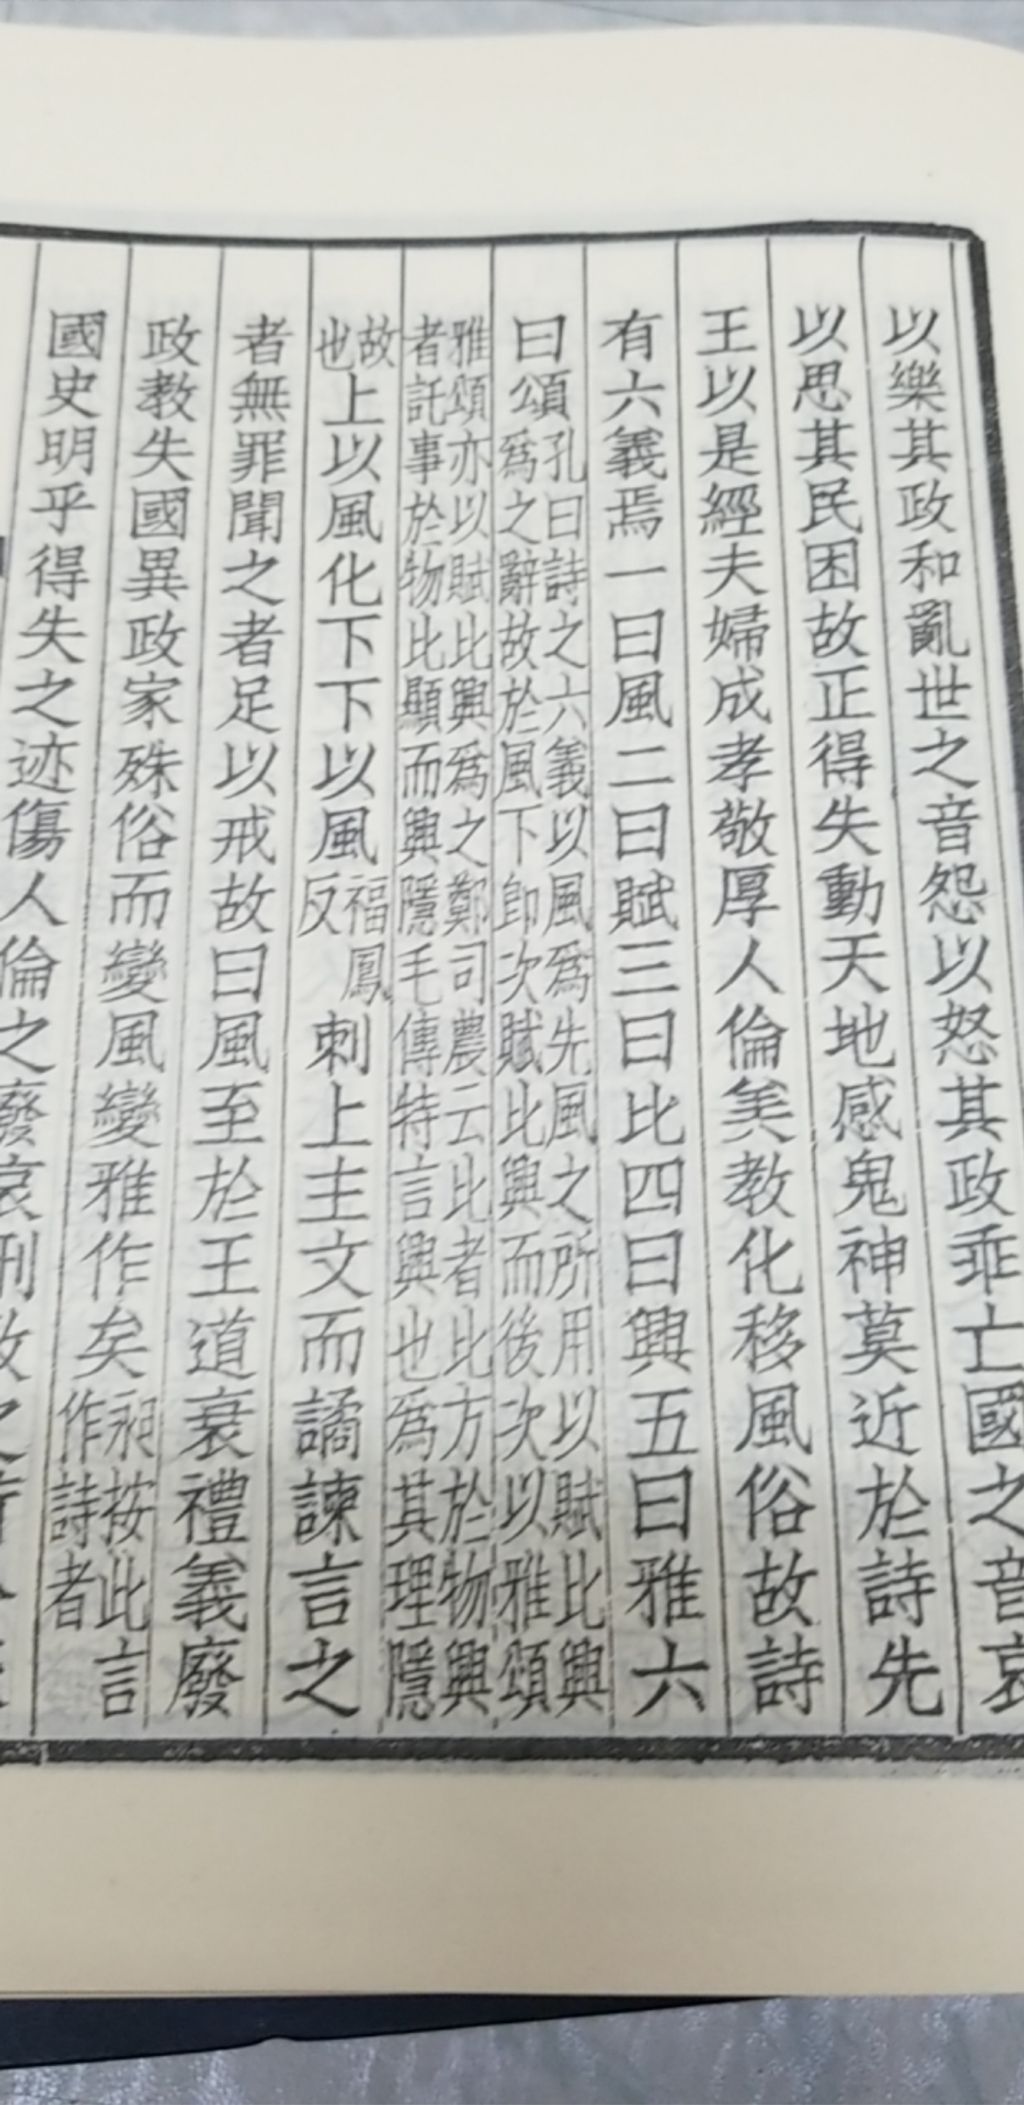 以樂其政和亂世之音怨以怒其政乖亡國之音哀
以思其民困故正得失動天地感鬼神莫近於詩先
王以是經夫婦成孝敬厚人倫美教化移風俗故詩
有六義焉一曰風二曰賦三曰比四曰興五曰雅六
曰頌孔曰詩之六義以風爲先風之所用以賦比興
爲之辭故於風下卽次賦比興而後次以雅頌
雅頌亦以賦比興爲之鄭司農云比者比方於物興
者託事於物比顯而興隱毛傳特言興也爲其理隱
故
也上以風化下下以風福鳳
反刺上主文而譎諫言之
者無罪聞之者足以戒故曰風至於王道衰禮義廢
政教失國異政家殊俗而變風變雅作矣按此言
作詩者
國史明乎得失之迹傷人倫之廢哀刑政之